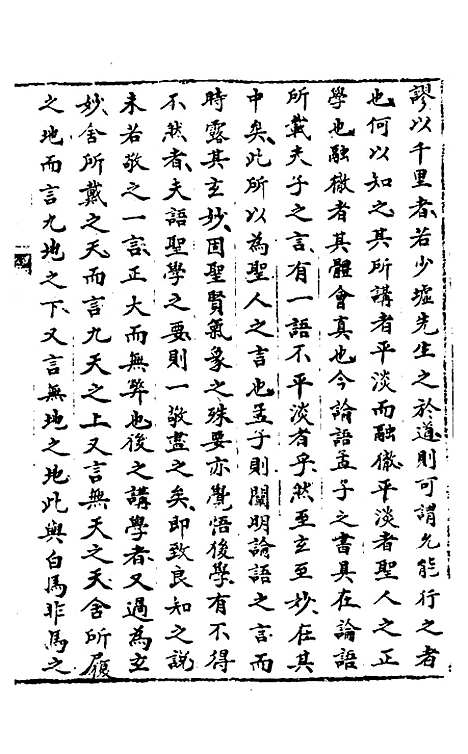 謬以千里者若少墟先生之於道則可謂允能行之者
也何以知之其所講者平淡而融徹平淡者聖人之正
學也融徹者其體會真也今論語孟子之書具在論語
所載夫子之言有一語不平淡者乎然至玄至妙在其
中矣此所以為聖人之言也孟子則闡明論語之言而
時露其玄妙固聖賢氣象之殊要亦覺悟後學有不得
不然者夫語聖學之要則一敬盡之矣即致良知之說
未若敬之一言正大而無弊也後之講學者又過為玄
妙舍所戴之天而言九天之上又言無天之天舍所履
之地而言九地之下又言無地之地此與白馬非馬之